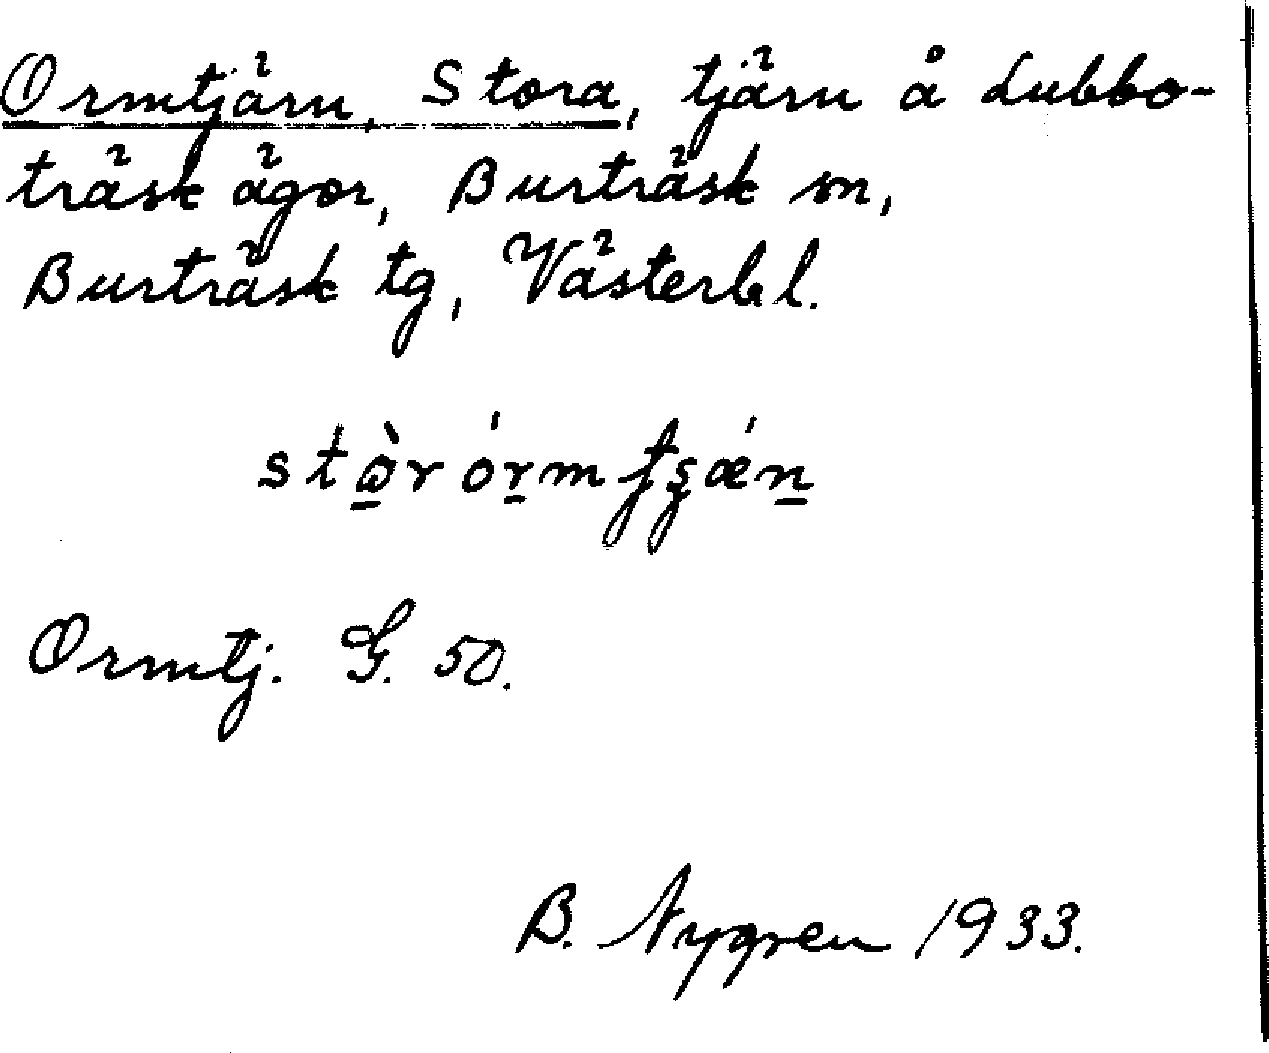 Ormtjärn, Stora, tjärn å Lubbo-
träsk ägor, Burträsk sn,
Burträsk tg, Västerb l.
Ormtj. G. 50.
B. Nygren 1933.